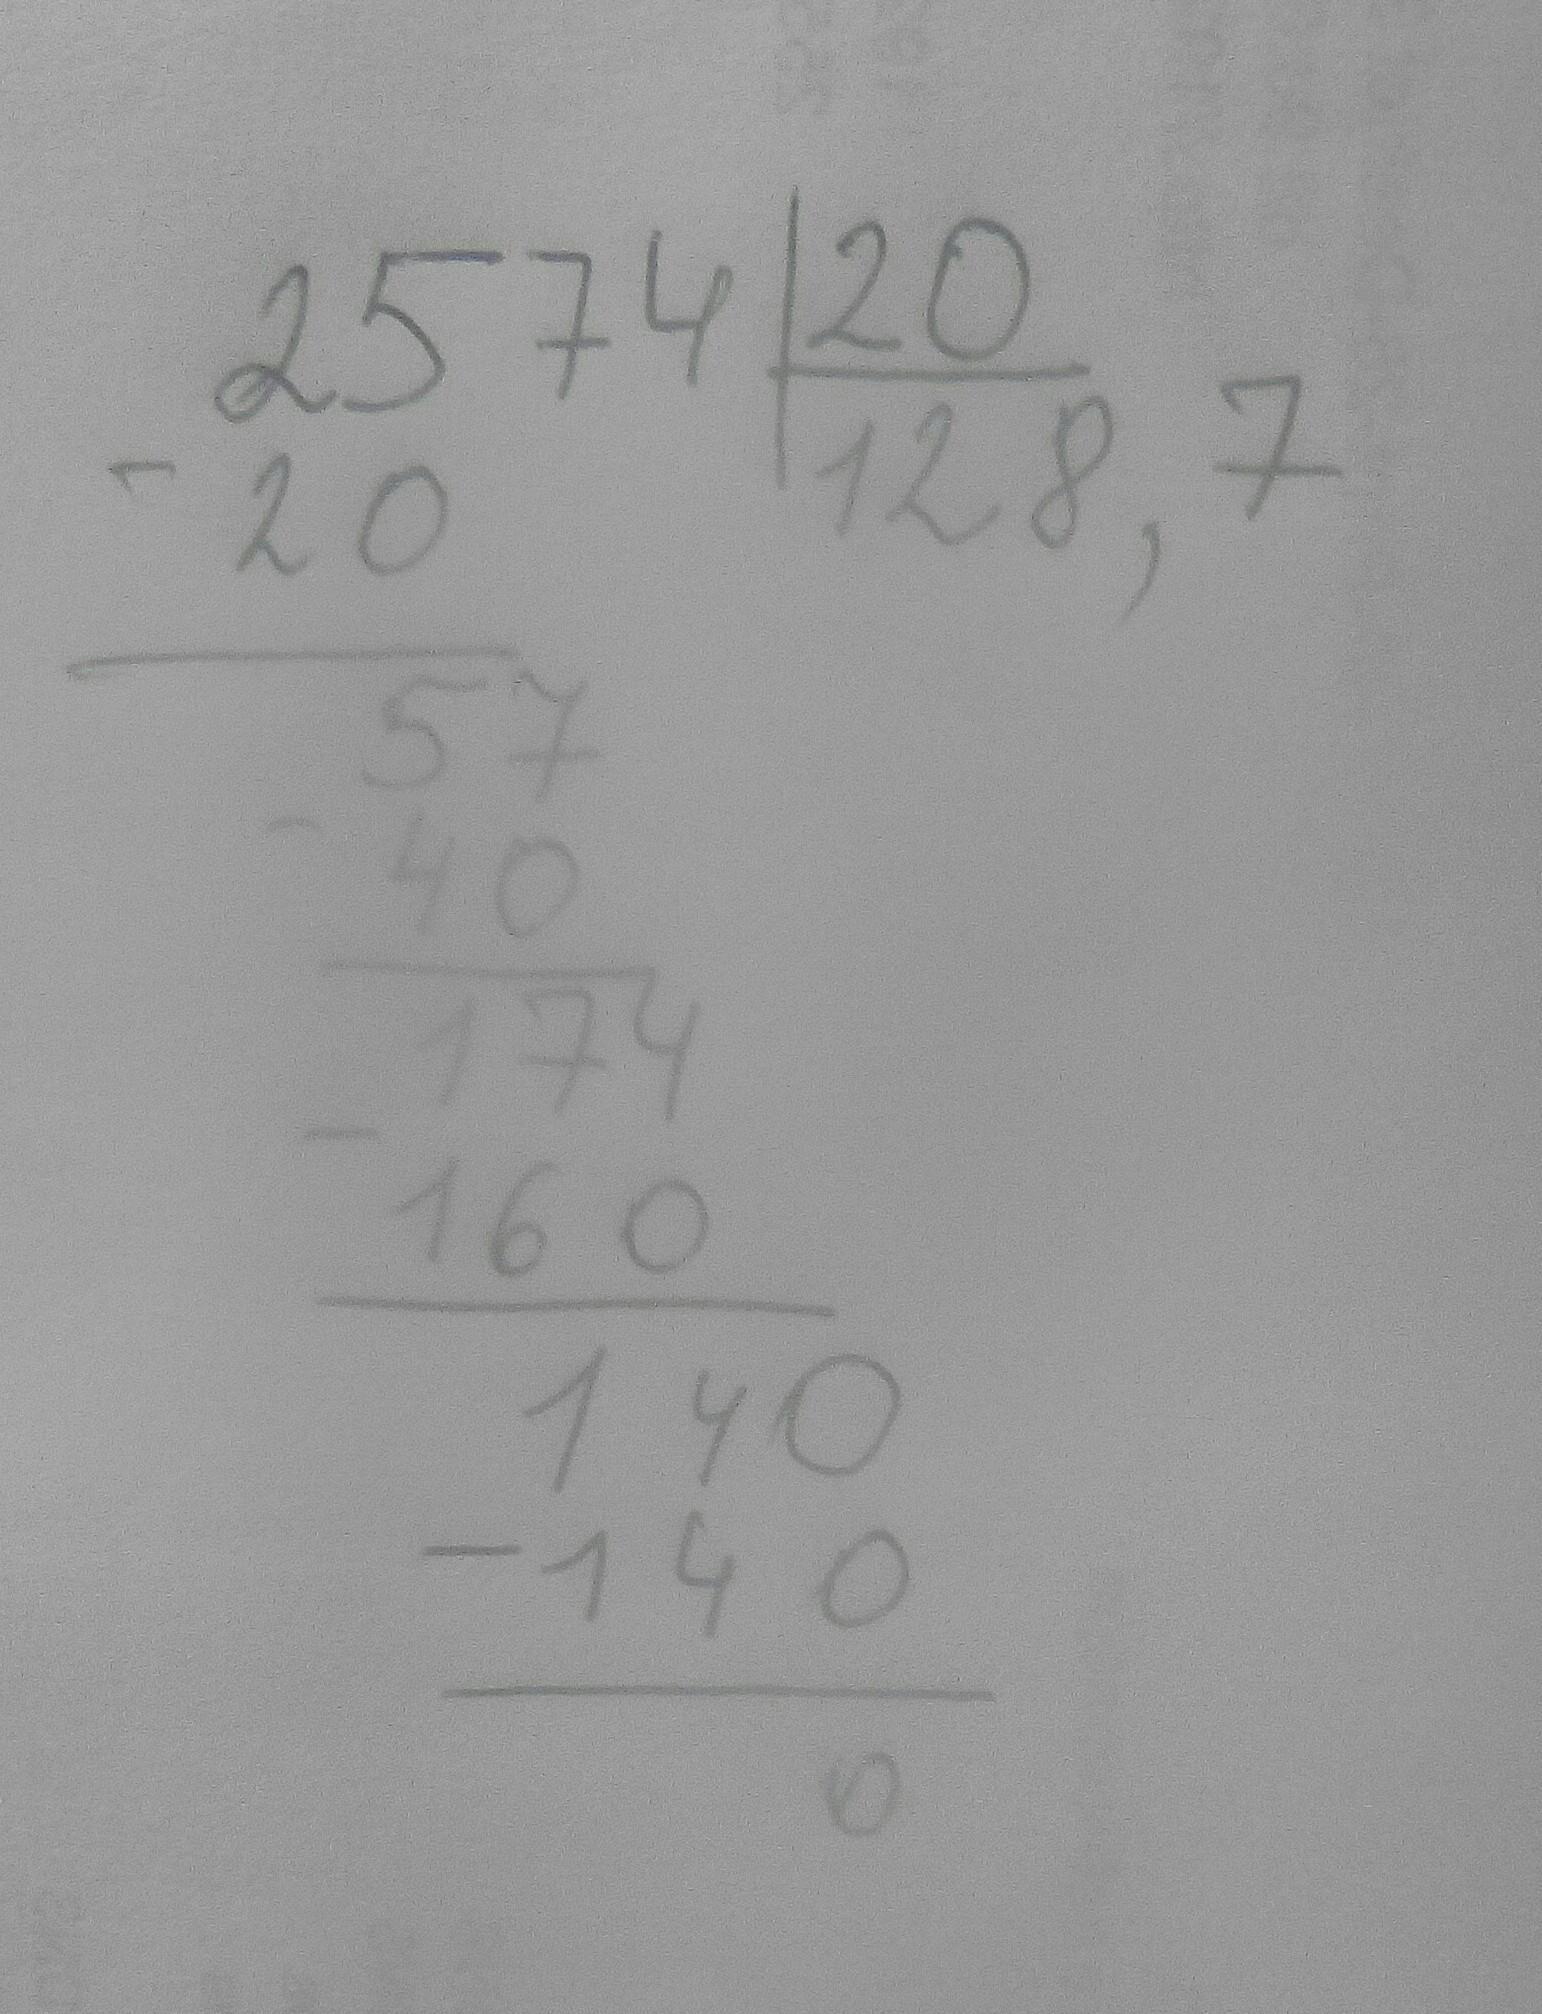 2574 | 20
- 20 128,7
57
- 40
174
- 160
140
- 140
0